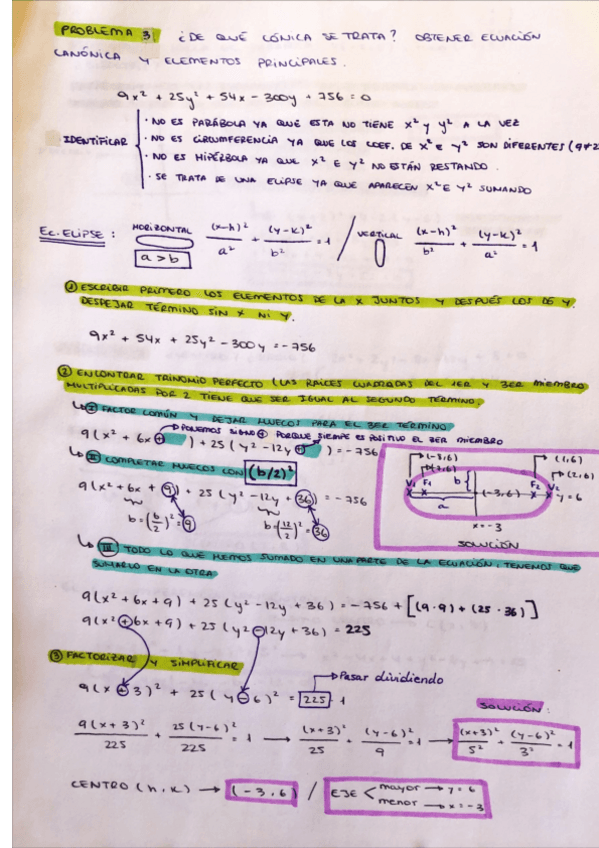 PROBLEMA 3: ¿DE QUÉ CÓNICA SE TRATA? OBTENER ECUACIÓN
CANÓNICA Y ELEMENTOS PRINCIPALES.
9x² + 25y² + 54x - 300y + 756 = 0
IDENTIFICAR
· NO ES PARÁBOLA YA QUE ESTA NO TIENE x² y y² A LA VEZ
· NO ES CIRCUMFERENCIA YA QUE LOS COEF. DE x² E y² SON DIFERENTES (9≠2
· NO ES HIPÉRBOLA YA QUE x² E y² NO ESTÁN RESTANDO.
· SE TRATA DE UNA ELIPSE YA QUE APARECEN x² E y² SUMANDO
EC. ELIPSE : HORIZONTAL (x-h)²/a² + (y-k)²/b² = 1 / VERTICAL (x-h)²/b² + (y-k)²/a² = 1
a > b
① ESCRIBIR PRIMERO LOS ELEMENTOS DE LA X JUNTOS Y DESPUÉS LOS DE Y.
DESPEJAR TÉRMINO SIN X NI Y.
9x² + 54x + 25y² - 300y = -756
② ENCONTRAR TRINOMIO PERFECTO (LAS RAÍCES CUADRADAS DEL 1ER Y 3ER MIEMBRO
MULTIPLICADAS POR 2 TIENE QUE SER IGUAL AL SEGUNDO TÉRMINO.
I FACTOR COMÚN Y DEJAR HUECOS PARA EL 3ER TÉRMINO
PONEMOS SIGNO + PORQUE SIEMPRE ES POSITIVO EL 3ER MIEMBRO
9(x² + 6x + ) + 25(y² - 12y + ) = -756
II COMPLETAR HUECOS CON (b/2)²
9(x² + 6x + 9) + 25(y² - 12y + 36) = -756
b = (6/2)² = 9 b = (12/2)² = 36
(-3,6) (1,6)
(2,6)
F1 b F2
(-3,6) y = 6
a
x = -3
SOLUCIÓN
III TODO LO QUE HEMOS SUMADO EN UNA PARTE DE LA ECUACIÓN, TENEMOS QUE
SUMARLO EN LA OTRA
9(x² + 6x + 9) + 25(y² - 12y + 36) = -756 + [(9·9) + (25·36)]
9(x² + 6x + 9) + 25(y² - 12y + 36) = 225
③ FACTORIZAR Y SIMPLIFICAR
Pasar dividiendo
9(x + 3)² + 25(y - 6)² = 225 · 1
SOLUCIÓN:
9(x+3)²/225 + 25(y-6)²/225 = 1 → (x+3)²/25 + (y-6)²/9 = 1 → (x+3)²/5² + (y-6)²/3² = 1
CENTRO (h, k) → (-3, 6) / EJE mayor → y = 6
menor → x = -3